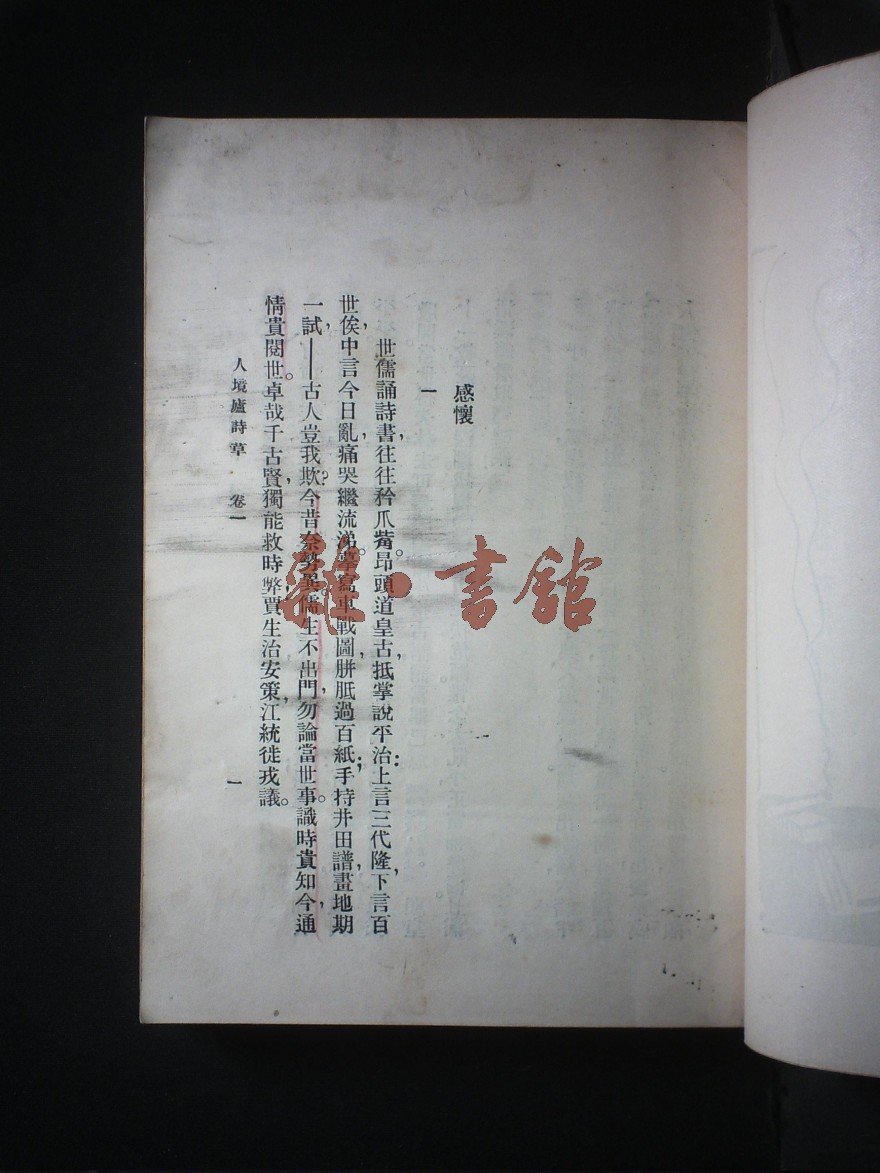 感懷
一
世儒誦詩書，往往矜爪觜。昂頭道皇古，抵掌說平治：上言三代隆，下言百
世俟，中言今日亂，痛哭繼流涕。摹寫車戰圖，胼胝過百紙；手持井田譜，畫地期
一試——古人豈我欺？今昔奈勢異。儒生不出門，勿論當世事。識時貴知今，通
情貴閱世。卓哉千古賢，獨能救時弊，賈生治安策，江統徙戎議。
人境廬詩草　卷一　一
雜·書館